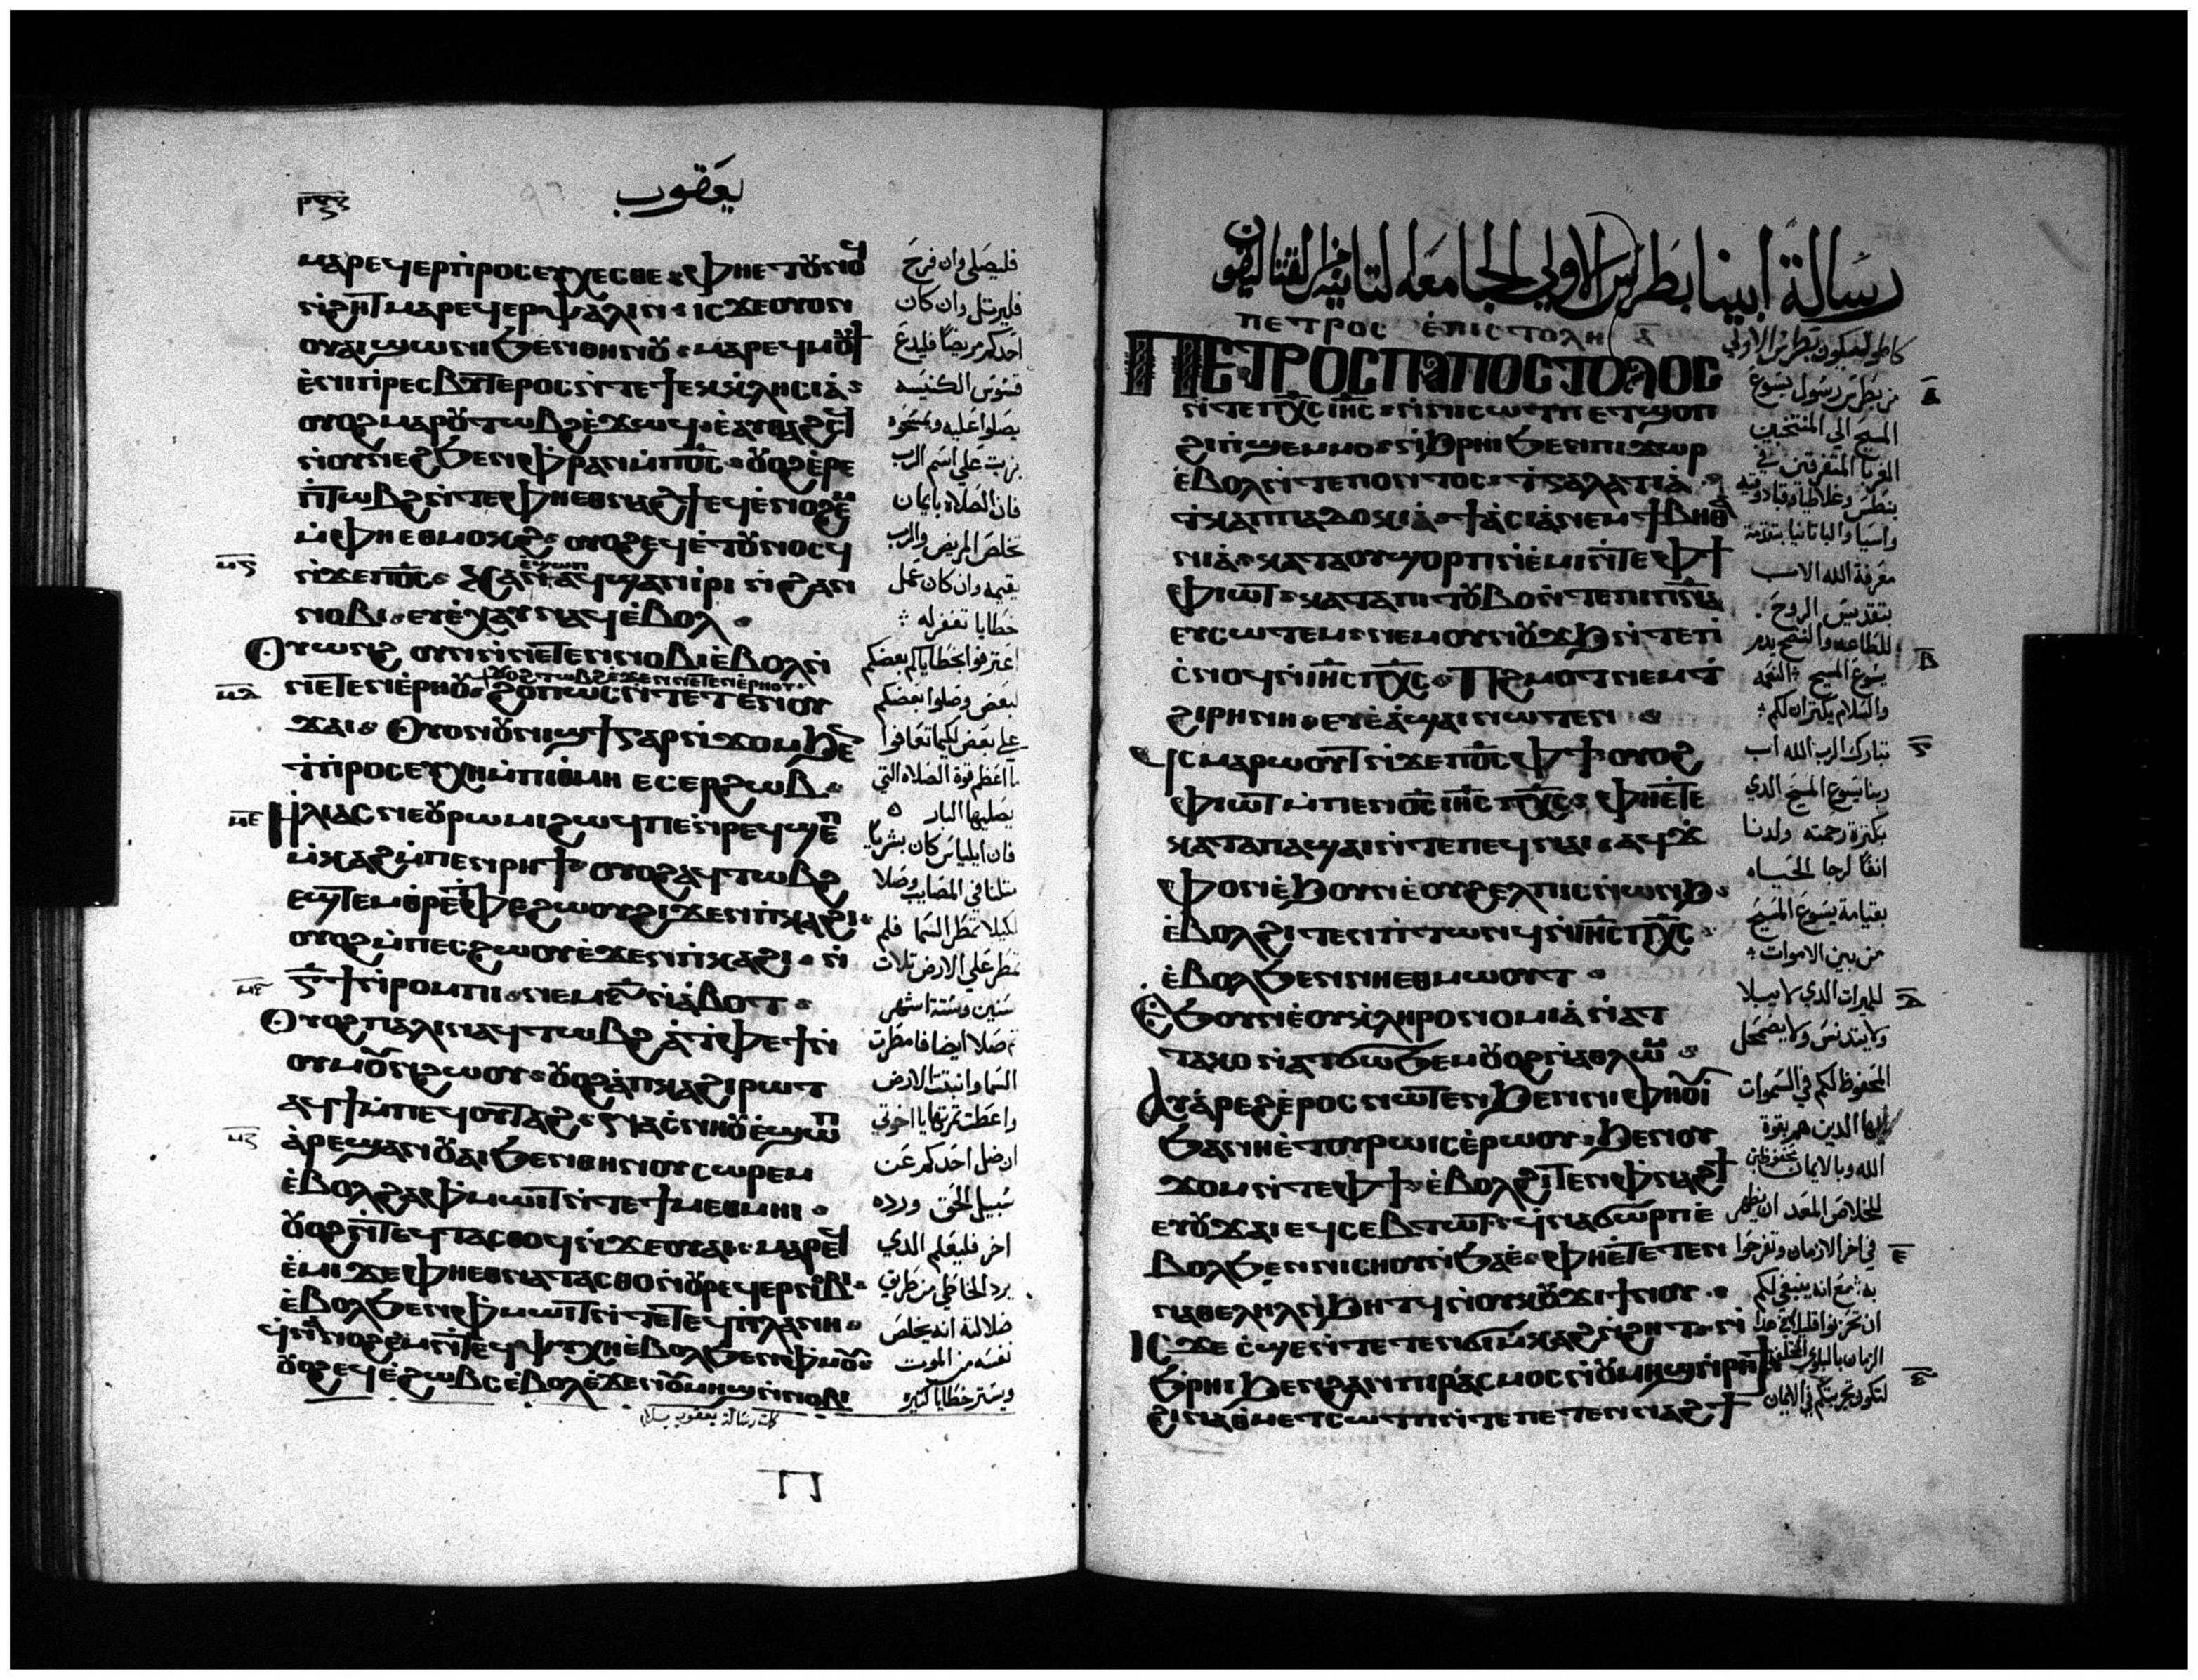 يعقوب
ⲙⲁⲣⲉϥⲉⲣⲡⲣⲟⲥⲉⲩⲭⲉⲥⲑⲉ ⲫⲏⲉⲧⲟⲩⲛⲟϥ
ⲛ̀ϩⲏⲧ ⲙⲁⲣⲉϥⲉⲣⲯⲁⲗⲓⲛ ⲓⲥϫⲉ ⲟⲩⲟⲛ
ⲟⲩⲁⲓ ϣⲱⲛⲓ ϧⲉⲛ ⲑⲏⲛⲟⲩ ⲙⲁⲣⲉϥⲙⲟⲩϯ
ⲉ̀ⲛⲓⲡⲣⲉⲥⲃⲩⲧⲉⲣⲟⲥ ⲛ̀ⲧⲉ ϯⲉⲕⲕⲗⲏⲥⲓⲁ̀
ⲟⲩⲟϩ ⲙⲁⲣⲟⲩⲧⲱⲃϩ ⲉ̀ϫⲱϥ ⲉ̀ⲁⲩⲑⲁϩⲥϥ
ⲛ̀ⲟⲩⲛⲉϩ ϧⲉⲛ ⲫⲣⲁⲛ ⲙ̀ⲡⲟ̅ⲥ̅ ⲟⲩⲟϩ ⲉ̀ⲣⲉ
ⲡ̀ⲧⲱⲃϩ ⲛ̀ⲧⲉ ⲫⲛⲁϩϯ ⲉϥⲉ̀ⲛⲟϩⲉⲙ
ⲙ̀ⲫⲏⲉⲑⲙⲟⲕϩ ⲟⲩⲟϩ ⲉϥⲉ̀ⲧⲟⲩⲛⲟⲥϥ
ⲛ̀ϫⲉ ⲡⲟ̅ⲥ̅ ⲕⲁⲛ ⲁϥϣⲁⲛⲓⲣⲓ ⲛ̀ϩⲁⲛ
ⲛⲟⲃⲓ ⲉⲩⲉ̀ⲭⲁⲩ ⲛⲁϥ ⲉ̀ⲃⲟⲗ
ⲟⲩⲱⲛϩ ⲟⲩⲛ ⲛ̀ⲛⲉⲧⲉⲛⲛⲟⲃⲓ ⲉ̀ⲃⲟⲗ ⲛ̀
ⲟⲩⲟϩ ⲧⲱⲃϩ ⲉ̀ϫⲉⲛ ⲛⲉⲧⲉⲛⲉ̀ⲣⲏⲟⲩ
ⲛⲉⲧⲉⲛⲉ̀ⲣⲏⲟⲩ ϩⲟⲡⲱⲥ ⲛ̀ⲧⲉⲧⲉⲛⲟⲩ
ϫⲁⲓ ⲟⲩⲟⲛ ⲟⲩⲛⲓϣϯ ⲅⲁⲣ ⲛ̀ϫⲟⲙ ϧⲉⲛ
ϯⲡⲣⲟⲥⲉⲩⲭⲏ ⲙ̀ⲡⲓⲑⲙⲏⲓ ⲉⲥⲉⲣϩⲱⲃ
ⲏⲗⲓⲁⲥ ⲛⲉ ⲟⲩⲣⲱⲙⲓ ϩⲱϥ ⲡⲉ ⲛ̀ⲣⲉϥϣⲉⲡ
ⲙ̀ⲕⲁϩ ⲙ̀ⲡⲉⲛⲣⲏϯ ⲟⲩⲟϩ ⲁϥⲧⲱⲃϩ
ⲉϣⲧⲉⲙⲑⲣⲉ ⲧⲫⲉ ϩⲱⲟⲩ ϩⲓϫⲉⲛ ⲡⲕⲁϩⲓ
ⲟⲩⲟϩ ⲙ̀ⲡⲉⲥϩⲱⲟⲩ ⲉ̀ϫⲉⲛ ⲡⲕⲁϩⲓ ⲛ̀
ⲅ̅ϯ ⲛ̀ⲣⲟⲙⲡⲓ ⲛⲉⲙ ⲋ̅ ⲛ̀ⲁ̀ⲃⲟⲧ
ⲟⲩⲟϩ ⲡⲁⲗⲓⲛ ⲁϥⲧⲱⲃϩ ⲁ̀ ⲧⲫⲉ ϯ ⲛ̀
ⲟⲩⲙⲟⲩⲛϩⲱⲟⲩ ⲟⲩⲟϩ ⲁ̀ ⲡⲕⲁϩⲓ ⲣⲱⲧ
ⲁϥϯ ⲙ̀ⲡⲉϥⲟⲩⲧⲁϩ ⲛⲁⲥⲛⲏⲟⲩ ⲉ̀ϣⲱⲡ
ⲁ̀ⲣⲉϣⲁⲛ ⲟⲩⲁⲓ ϧⲉⲛ ⲑⲏⲛⲟⲩ ⲥⲱⲣⲉⲙ
ⲉ̀ⲃⲟⲗϩⲁ ⲫⲙⲱⲓⲧ ⲛ̀ⲧⲉ ϯⲙⲉⲑⲙⲏⲓ
ⲟⲩⲟϩ ⲛ̀ⲧⲉϥⲧⲁⲥⲑⲟϥ ⲛ̀ϫⲉ ⲟⲩⲁⲓ ⲙⲁⲣⲉϥ
ⲉ̀ⲙⲓ ϫⲉ ⲫⲏⲉⲑⲛⲁⲧⲁⲥⲑⲟ ⲛ̀ⲟⲩⲣⲉϥⲉⲣⲛⲟⲃⲓ
ⲉ̀ⲃⲟⲗϧⲉⲛ ⲫⲙⲱⲓⲧ ⲛ̀ⲧⲉ ⲧⲉϥⲡⲗⲁⲛⲏ
ϥⲛⲁⲛⲟϩⲉⲙ ⲛ̀ⲧⲉϥⲯⲩⲭⲏ ⲉ̀ⲃⲟⲗϧⲉⲛ ⲫⲙⲟⲩ
ⲟⲩⲟϩ ⲉϥⲉ̀ϩⲱⲃⲥ ⲉ̀ⲃⲟⲗ ⲉ̀ϫⲉⲛ ⲟⲩⲙⲏϣ ⲛ̀ⲛⲟⲃⲓ
فليصلي وان فرح
فليرتل وان كان
احدكم مريضا فليدع
قسوس الكنيسه
يصلوا عليه ويمسحوه
بزيت علي اسم الرب
فان الصلاه بايمان
تخلص المريض والرب
يقيمه وان كان عمل
خطايا تغفر له
اعترفوا بخطاياكم بعضكم
لبعض وصلوا بعضكم
علي بعض لكيما تعافوا
ما اعظم قوة الصلاه التي
يصليها البار
فان ايلياس كان بشريا
مثلنا في المصايب وصلا
لكيلا تمطر السما فلم
تمطر علي الارض ثلاث
سنين وستة اشهر
ثم صلا ايضا فامطرت
السما وانبتت الارض
واعطت ثمرتها يا اخوتي
ان ضل احدكم عن
سبيل الحق ورده
اخر فليعلم الذي
يرد الخاطي من طريق
ضلالته انه يخلص
نفسه من الموت
ويستر خطايا كثيره
كملت رسالة يعقوب بسلام
رسالة ابينا بطرس الاولي الجامعه
ⲡⲉⲧⲣⲟⲥ ⲉ̀ⲡⲓⲥⲧⲟⲗⲏ ⲁ̅
ⲡⲉⲧⲣⲟⲥ ⲡⲁⲡⲟⲥⲧⲟⲗⲟⲥ
ⲛ̀ⲧⲉ ⲡⲭ̅ⲥ̅ ⲓⲏ̅ⲥ̅ ⲛ̀ⲛⲓⲥⲱⲧⲡ ⲉⲧϣⲟⲡ
ϩⲓ ⲡϣⲉⲙⲙⲟ ⲛ̀ϩⲣⲏⲓ ϧⲉⲛ ⲡⲓϫⲱⲣ
ⲉ̀ⲃⲟⲗ ⲛ̀ⲧⲉ ⲡⲟⲛⲧⲟⲥ ϯⲅⲁⲗⲁⲧⲓⲁ̀
ϯⲕⲁⲡⲡⲁⲇⲟⲕⲓⲁ̀ ϯⲁ̀ⲥⲓⲁ̀ ⲛⲉⲙ ϯⲃⲏⲑ
ⲛⲓⲁ̀ ⲕⲁⲧⲁ ⲟⲩϣⲟⲣⲡ ⲛ̀ⲉ̀ⲙⲓ ⲛ̀ⲧⲉ ⲫϯ
ⲫⲓⲱⲧ ⲕⲁⲧⲁ ⲡⲓⲧⲟⲩⲃⲟ ⲛ̀ⲧⲉ ⲡⲓⲡ̅ⲛ̅ⲁ̅
ⲉⲩⲥⲱⲧⲉⲙ ⲛⲉⲙ ⲟⲩⲛⲟⲩϫϧ ⲛ̀ⲧⲉ ⲡ
ⲥ̀ⲛⲟϥ ⲛ̀ⲓⲏ̅ⲥ̅ ⲡⲭ̅ⲥ̅ ⲡϩⲙⲟⲧ ⲛⲉⲙ ⲧ
ϩⲓⲣⲏⲛⲏ ⲉⲩⲉ̀ⲁ̀ϣⲁⲓ ⲛⲱⲧⲉⲛ
ϥⲥⲙⲁⲣⲱⲟⲩⲧ ⲛ̀ϫⲉ ⲡⲟ̅ⲥ̅ ⲫϯ ⲟⲩⲟϩ
ⲫⲓⲱⲧ ⲙ̀ⲡⲉⲛⲟ̅ⲥ̅ ⲓⲏ̅ⲥ̅ ⲡⲭ̅ⲥ̅ ⲫⲏⲉⲧⲉ
ⲕⲁⲧⲁ ⲡⲁϣⲁⲓ ⲛ̀ⲧⲉ ⲡⲉϥⲛⲁⲓ ⲁϥϫ
ⲫⲟⲛ ⲉ̀ϧⲟⲩⲛ ⲉ̀ⲟⲩϩⲉⲗⲡⲓⲥ ⲛ̀ⲱⲛϧ
ⲉ̀ⲃⲟⲗϩⲓⲧⲉⲛ ⲡⲧⲱⲛϥ ⲛ̀ⲓⲏ̅ⲥ̅ ⲡⲭ̅ⲥ̅
ⲉ̀ⲃⲟⲗϧⲉⲛ ⲛⲏⲉⲑⲙⲱⲟⲩⲧ
ⲉ̀ϧⲟⲩⲛ ⲉ̀ⲟⲩⲕⲗⲏⲣⲟⲛⲟⲙⲓⲁ̀ ⲛ̀ⲁⲧ
ⲧⲁⲕⲟ ⲛ̀ⲁⲧϭⲱϧⲉⲙ ⲟⲩⲟϩ ⲛ̀ⲁⲑⲗⲱⲙ
ⲁⲩⲁ̀ⲣⲉϩ ⲉ̀ⲣⲟⲥ ⲛⲱⲧⲉⲛ ϧⲉⲛ ⲛⲓⲫⲏⲟⲩⲓ
ϧⲁ ⲛⲏⲉ̀ⲧⲟⲩⲣⲱⲓⲥ ⲉ̀ⲣⲱⲟⲩ ϧⲉⲛ ⲟⲩ
ϫⲟⲙ ⲛ̀ⲧⲉ ⲫϯ ⲉ̀ⲃⲟⲗϩⲓⲧⲉⲛ ⲫⲛⲁϩϯ
ⲉⲩⲟⲩϫⲁⲓ ⲉϥⲥⲉⲃⲧⲱⲧ ϥⲛⲁϭⲱⲣⲡ ⲉ̀
ⲃⲟⲗ ϧⲉⲛ ⲛⲓⲥⲏⲟⲩ ⲛ̀ϧⲁⲉ̀ ⲫⲏⲉ̀ⲧⲉⲧⲉⲛ
ⲛⲁⲑⲉⲗⲏⲗ ⲛ̀ϧⲏⲧϥ ⲛ̀ⲟⲩⲕⲟⲩϫⲓ ϯⲛⲟⲩ
ⲓⲥϫⲉ ⲥ̀ϣⲉ ⲛ̀ⲧⲉⲧⲉⲛϭⲓⲙⲕⲁϩ ⲛ̀ϩⲏⲧ ⲛ̀
ϧⲣⲏⲓ ϧⲉⲛ ϩⲁⲛⲡⲓⲣⲁⲥⲙⲟⲥ ⲛ̀ⲟⲩⲙⲏϣ ⲛ̀ⲣⲏϯ
ϩⲓⲛⲁ ⲑⲙⲉⲧⲥⲱⲧⲡ ⲛ̀ⲧⲉ ⲡⲉⲧⲉⲛⲛⲁϩϯ
من بطرس رسول يسوع
المسيح الي المنتخبين
الغربا المتفرقين في
بنطس وغلاطيا وقبادوقيه
واسيا والباثانيا بتقدمة
معرفة الله الاب
بتقديس الروح
للطاعه والنضح بدم
يسوع المسيح النعمه
والسلام يكثران لكم
تبارك الرب الله اب
ربنا يسوع المسيح الذي
بكثرة رحمته ولدنا
انفا لرجا الحياه
بقيامة يسوع المسيح
من بين الاموات
للميراث الذي لا يبلا
ولا يتدنس ولا يضمحل
المحفوظ لكم في السموات
ايها الذين هم بقوة
الله وبالايمان محفوظين
للخلاص المعد ان يظهر
في اخر الازمان وتفرحوا
به مع انه ينبغي لكم
ان تحزنوا قليلا
الزمان بالبلوي
لتكون تجربتكم في الايمان